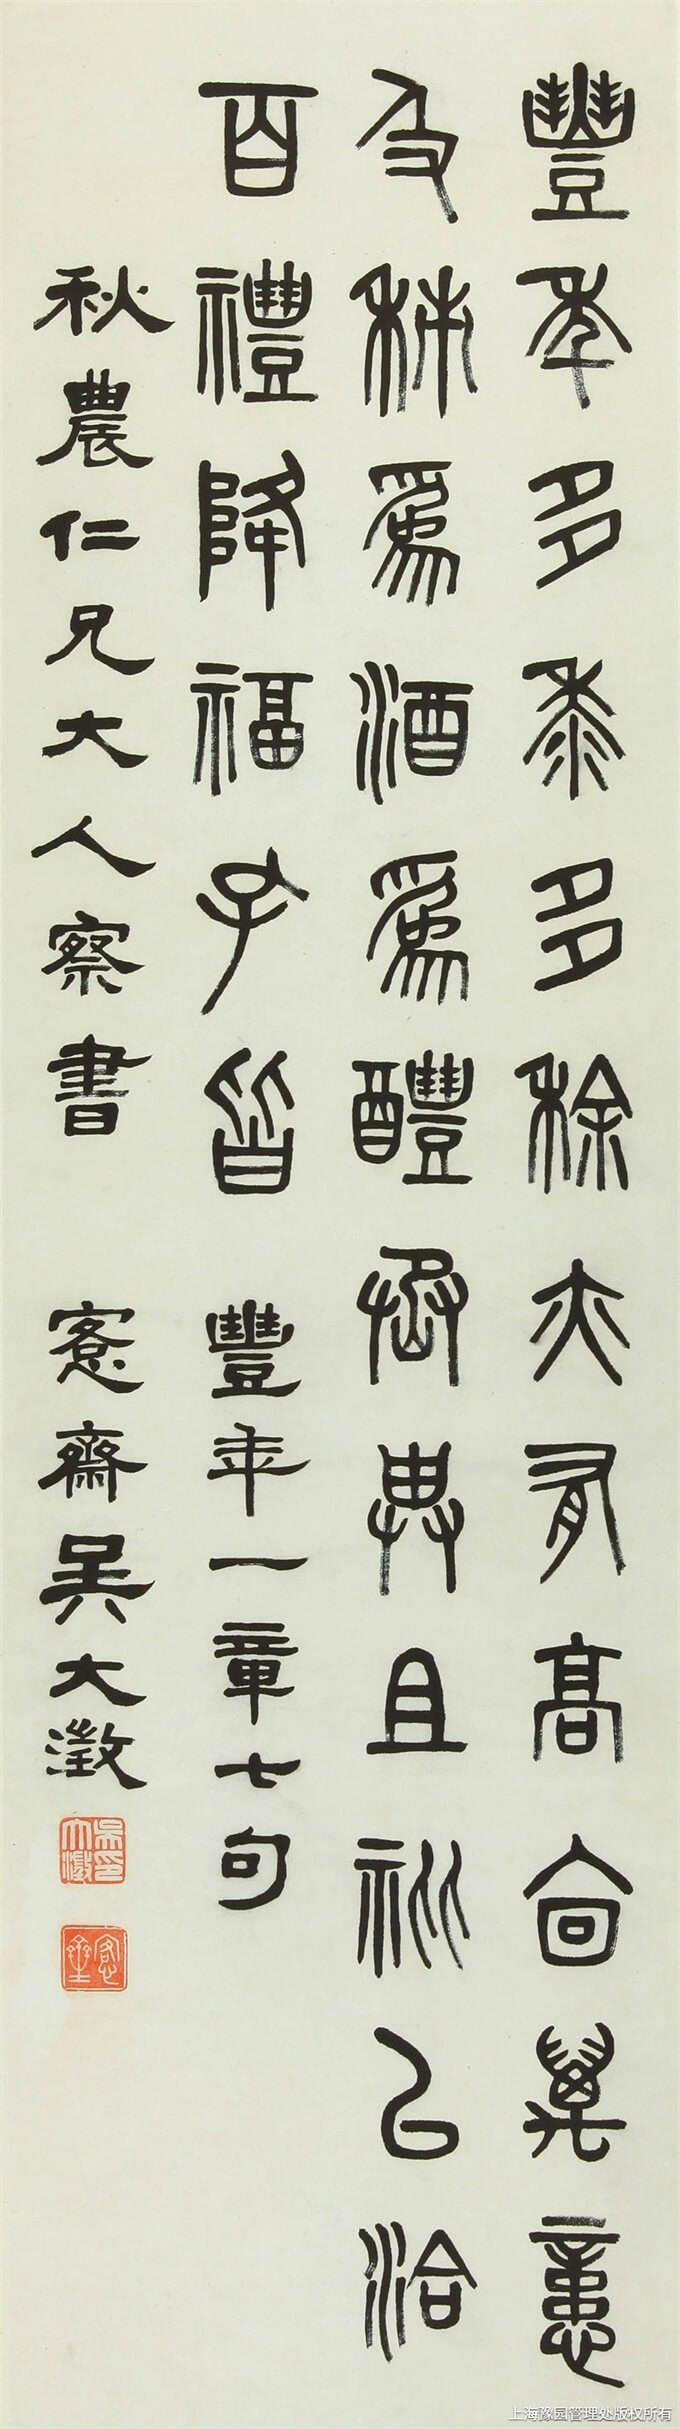 豐年多黍多稌亦有高㐭萬意
及秭為酒為醴畀畀且礼㠯洽
百禮降福孔皆
豐年一章七句
秋農仁兄大人察書
愙齋吳大澂
吳大澂印
愙齋
上海豫园管理处版权所有